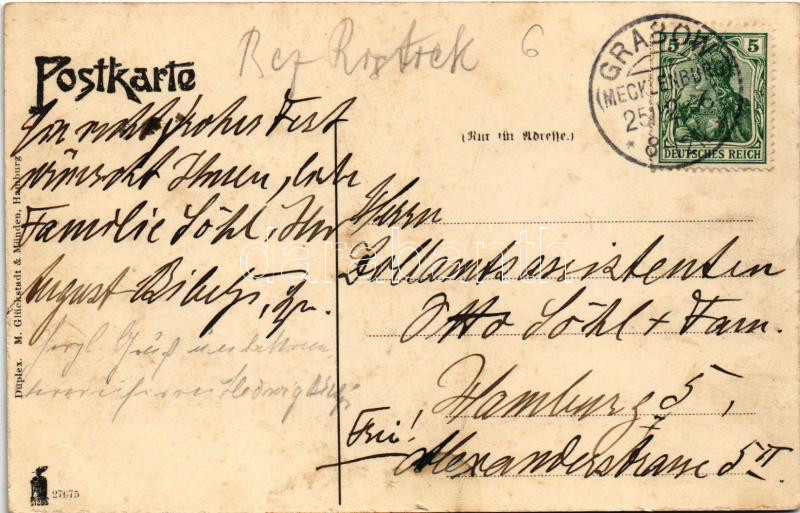 Bez Rostock 6
Postkarte
GRABOW
(MECKLENBURG)
25.12.
* 8
5 5
DEUTSCHES REICH
(Nur für Adresse.)
Ein recht frohes Fest
wünscht Ihnen, liebe
Familie Söhl, Ihr
August
Herrn
Zollamtsassistenten
Otto Söhl + Fam.
Hamburg 5,
Frei!
Alexanderstrasse 5 II
Herzl. Gruß
Hedwig
Duplex. M. Glückstadt & Münden, Hamburg
27675
darabanth